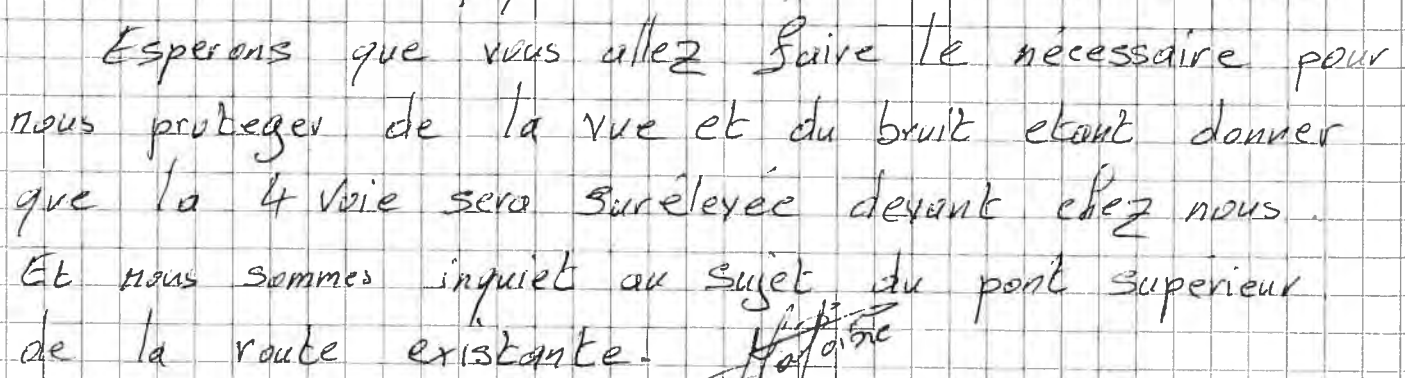 Esperons que vous allez faire le nécessaire pour
nous proteger de la vue et du bruit etant donner
que la 4 voie sera surélevée devant chez nous.
Et nous sommes inquiet au sujet du pont superieur
de la route existante.